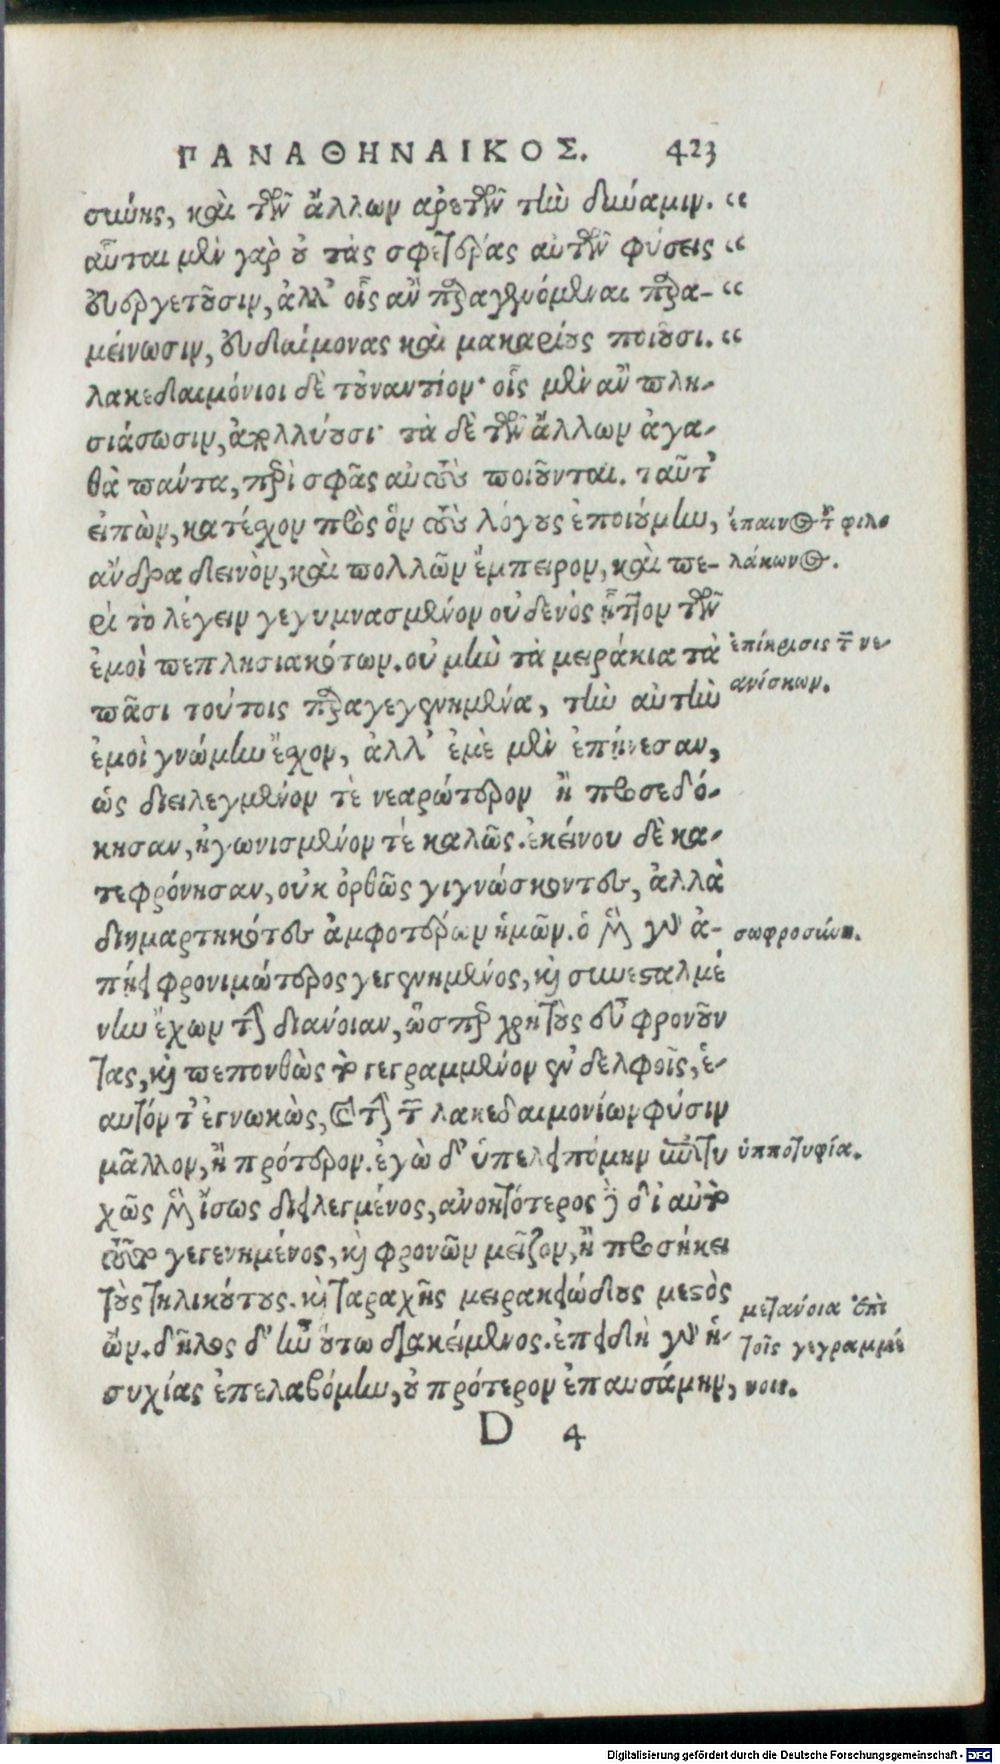 ΠΑΝΑΘΗΝΑΙΚΟΣ. 423
σύνης, καὶ τῶν ἄλλων ἀρετῶν τὴν δύναμιν. “
αὗται μὲν γὰρ οὐ τὰς σφετέρας αὐτῶν φύσεις “
εὐεργετοῦσιν, ἀλλ' οἷς ἂν παραγενόμεναι παρα- “
μείνωσιν, εὐδαίμονας καὶ μακαρίους ποιοῦσι. “
λακεδαιμόνιοι δὲ τοὐναντίον· οἷς μὲν ἂν πλη-
σιάσωσιν, ἀπολλύουσι· τὰ δὲ τῶν ἄλλων ἀγα-
θὰ πάντα, περὶ σφᾶς αὐτοὺς ποιοῦνται. ταῦτ'
εἰπὼν, κατέσχον πρὸς ὃν τοὺς λόγους ἐποιούμην,
ἄνδρα δεινὸν, καὶ πολλῶν ἔμπειρον, καὶ πε-
ρὶ τὸ λέγειν γεγυμνασμένον οὐδενὸς ἧττον τῶν
ἐμοὶ πεπλησιακότων. οὐ μὴν τὰ μειράκια τὰ
πᾶσι τούτοις παραγεγενημένα, τὴν αὐτὴν
ἐμοὶ γνώμην ἔσχον, ἀλλ' ἐμὲ μὲν ἐπῄνεσαν,
ὡς διειλεγμένον τὲ νεαρώτερον ἢ προσεδό-
κησαν, ἠγωνισμένον τὲ καλῶς. ἐκείνου δὲ κα-
τεφρόνησαν, οὐκ ὀρθῶς γιγνώσκοντες, ἀλλὰ
διημαρτηκότες ἀμφοτέρων ἡμῶν. ὁ μὲν γὰρ ἀ-
πῄει φρονιμώτερος γεγενημένος, καὶ συνεσταλμέ
νην ἔχων τὴν διάνοιαν, ὥσπερ χρὴ τοὺς εὖ φρονοῦν
τας, καὶ πεπονθὼς τὸ γεγραμμένον ἐν δελφοῖς, ἑ-
αυτόν τ' ἐγνωκὼς, καὶ τὴν τῶν λακεδαιμονίων φύσιν
μᾶλλον, ἢ πρότερον. ἐγὼ δ' ὑπελειπόμην ἐπιτυ
χῶς μὲν ἴσως διειλεγμένος, ἀνοητότερος δὲ δι' αὐτὸ
τοῦτο γεγενημένος, καὶ φρονῶν μεῖζον, ἢ προσήκει
τοὺς τηλικούτους. καὶ ταραχῆς μειρακιώδους μεστὸς
ὤν. δῆλος δ' ἦν οὕτω διακείμενος. ἐπειδὴ γὰρ ἡ-
συχίας ἐπελαβόμην, οὐ πρότερον ἐπαυσάμην,
D 4
ἔπαινος τοῦ φιλο
λάκωνος.
ἐπίκρισις τῶν νε-
ανίσκων.
σωφροσύνη.
ὑπποτυφία.
μετάνοια ἐπὶ
τοῖς γεγραμμέ
νοις.
Digitalisierung gefördert durch die Deutsche Forschungsgemeinschaft - DFG